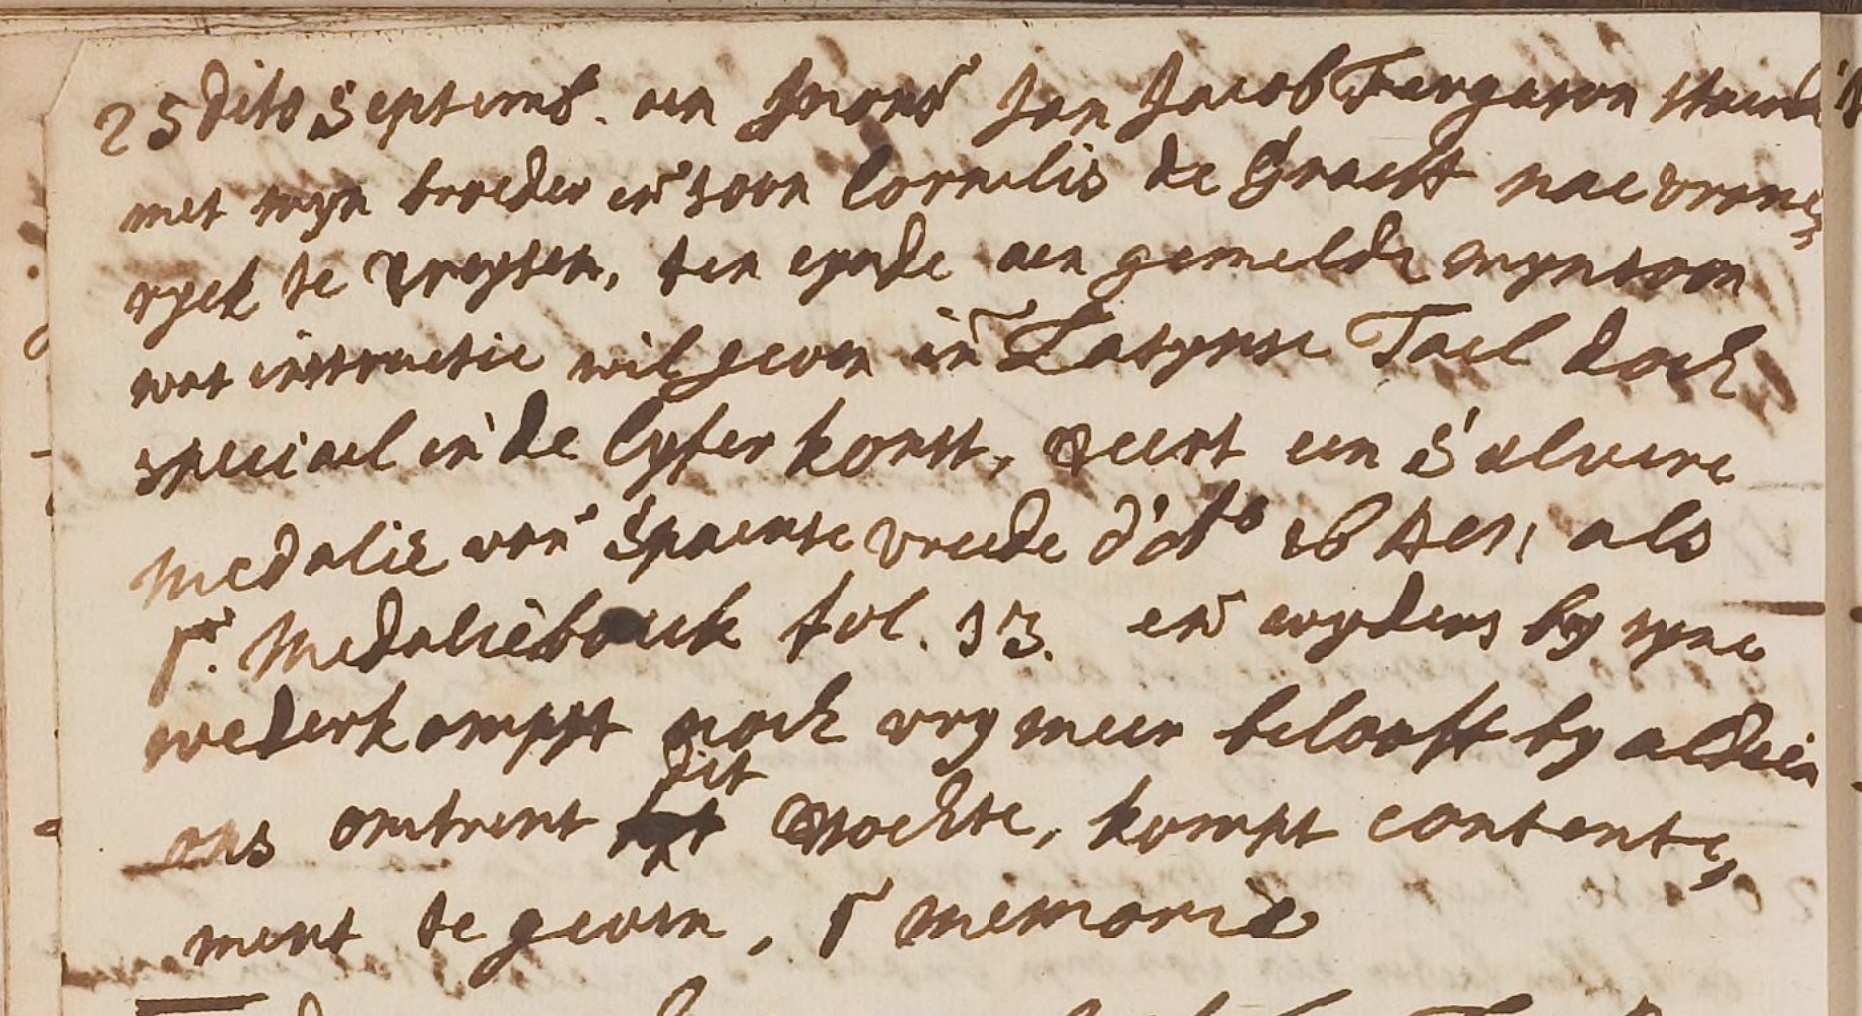 25 dito Septemb. aen Jnons.r Jan Jacob Ferguson staende
met myn broeder en soon Cornelis de Graeff nae vranc,
ryck te vreysen, ten eynde aen gemelde mynsoon
wat instructie wil geven in Latynse Tael doch
speciael in de Cyfer konst, vereert een Silvere
medalie van Spaense vreede d'Ao 1648, als
pr. Medalieboeck fol. 33. en wyders by syne
wederkompst noch vry meer belooft by aldien
ons omtrent dit mochte, kompt contente,
ment te geven, pr memorie